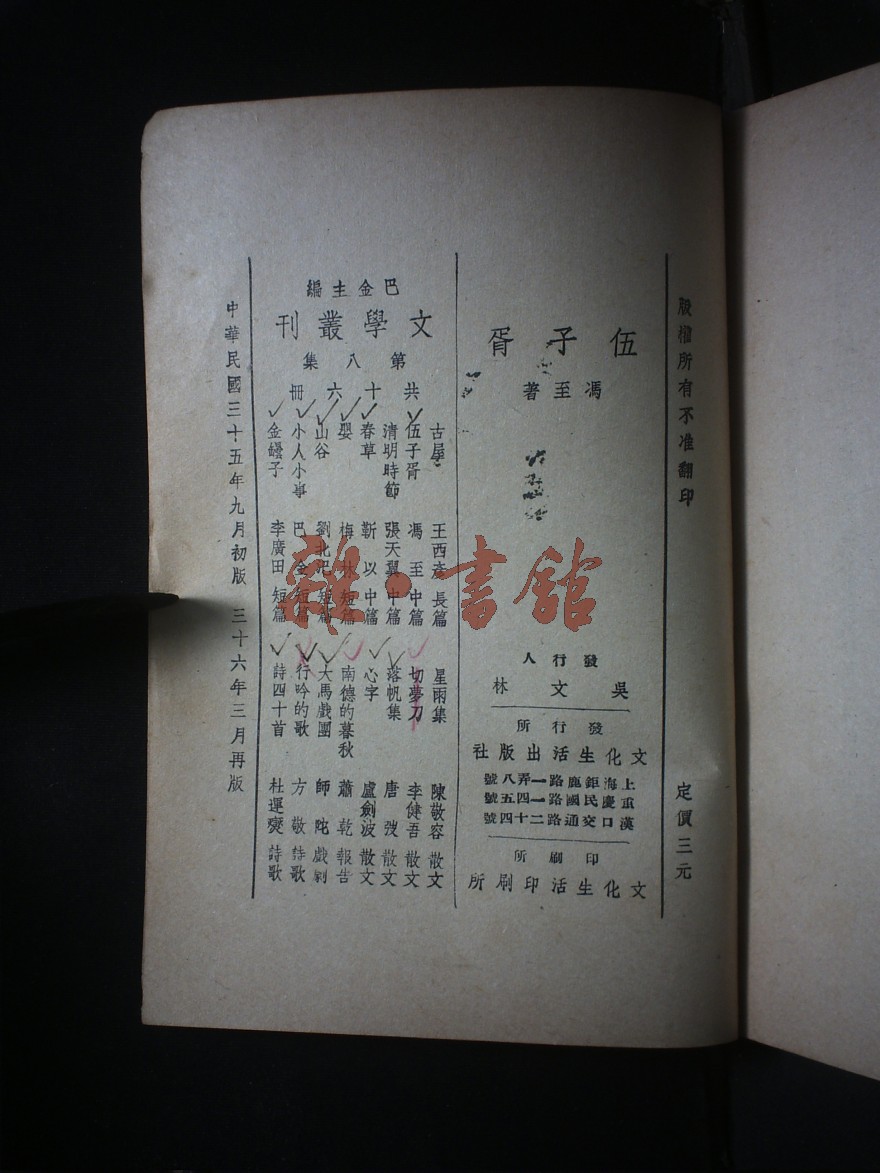 版權所有不准翻印
定價三元
伍子胥
馮至著
發行人
吳文林
發行所
文化生活出版社
上海鉅鹿路一弄八號
重慶民國路一四五號
漢口交通路二十四號
印刷所
文化生活印刷所
巴金主編
文學叢刊
第八集
共十六冊
古屋 王西彥 長篇
伍子胥 馮至 中篇
清明時節 張天翼 中篇
春草 靳以 中篇
嬰 梅林 短篇
山谷 劉北汜 短篇
小人小事 巴金 短篇
金罎子 李廣田 短篇
星雨集 陳敬容 散文
切夢刀 李健吾 散文
落帆集 唐弢 散文
心字 盧劍波 散文
南德的暮秋 蕭乾 報告
大馬戲團 師陀 戲劇
行吟的歌 方敬 詩歌
詩四十首 杜運燮 詩歌
中華民國三十五年九月初版 三十六年三月再版
雜·書館